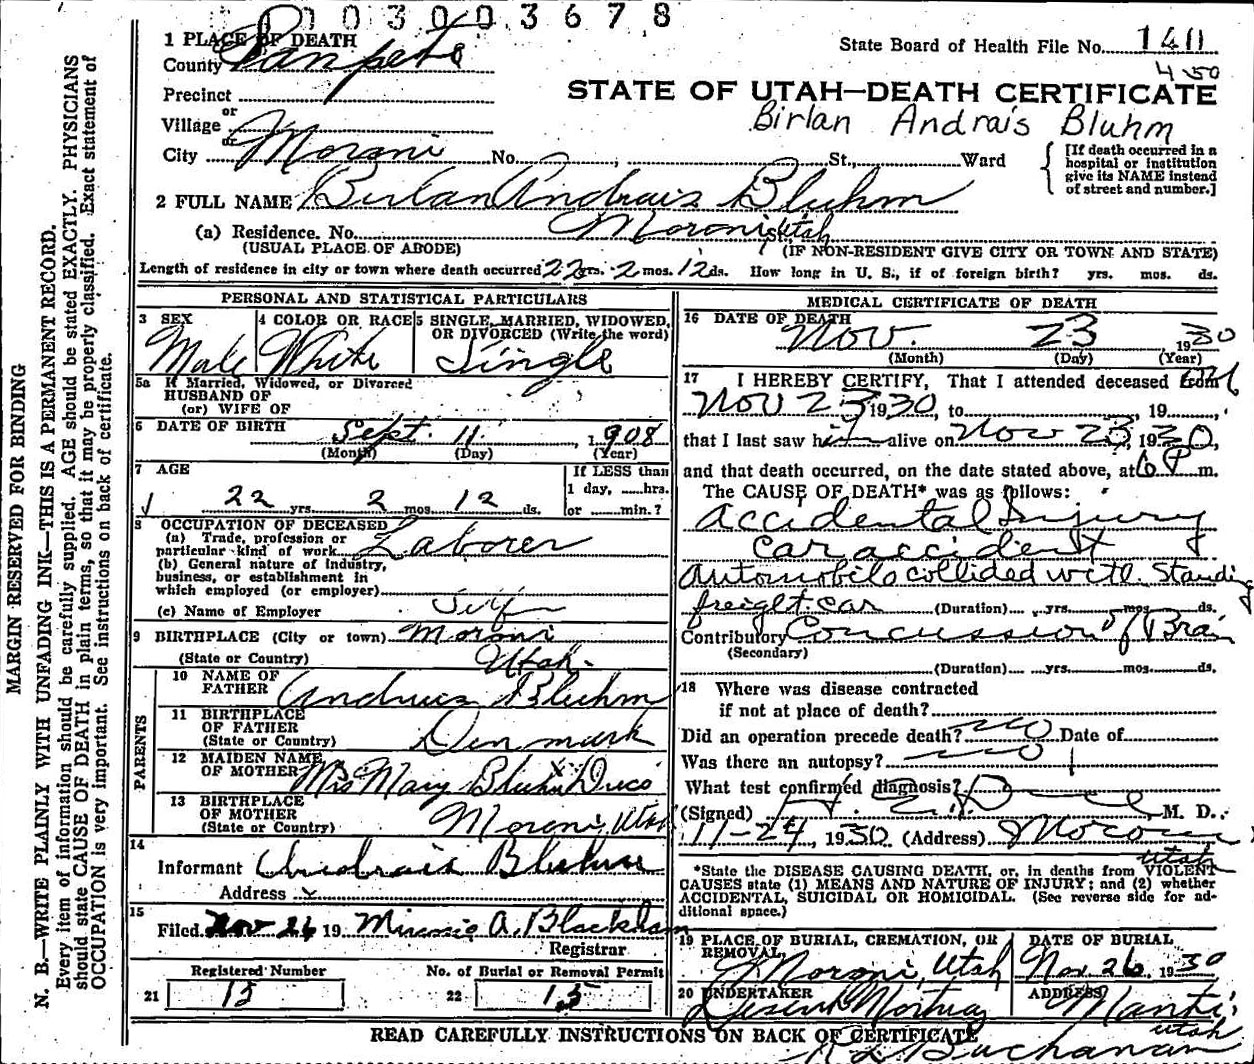 0 0 3 0 0 3 6 7 8
1 PLACE OF DEATH
County Sanpete
State Board of Health File No. 1411
4 50
STATE OF UTAH—DEATH CERTIFICATE
Precinct
or
Village
or
Birlan Andrais Bluhm
City Moroni No. ; St., Ward
[If death occurred in a hospital or institution give its NAME instead of street and number.]
2 FULL NAME Birlan Andrais Bluhm
(a) Residence. No. Moroni, Utah
(USUAL PLACE OF ABODE) (IF NON-RESIDENT GIVE CITY OR TOWN AND STATE)
Length of residence in city or town where death occurred 22 yrs. 2 mos. 12 ds. How long in U. S., if of foreign birth? yrs. mos. ds.
PERSONAL AND STATISTICAL PARTICULARS
3 SEX Male
4 COLOR OR RACE White
5 SINGLE, MARRIED, WIDOWED, OR DIVORCED (Write the word) Single
5a If Married, Widowed, or Divorced
HUSBAND OF
(or) WIFE OF
6 DATE OF BIRTH Sept. 11, 1908
(Month) (Day) (Year)
7 AGE
22 yrs. 2 mos. 12 ds.
If LESS than
1 day, hrs.
or min.?
8 OCCUPATION OF DECEASED
(a) Trade, profession or
particular kind of work Laborer
(b) General nature of industry,
business, or establishment in
which employed (or employer)
(c) Name of Employer Self
9 BIRTHPLACE (City or town) Moroni
(State or Country) Utah
PARENTS
10 NAME OF
FATHER Andrais Bluhm
11 BIRTHPLACE
OF FATHER
(State or Country) Denmark
12 MAIDEN NAME
OF MOTHER Mrs Mary Bluhm
13 BIRTHPLACE
OF MOTHER
(State or Country) Moroni, Utah
14
Informant Andrais Bluhm
Address
15
Filed Nov 26 19 A. Blackham
Registrar
Registered Number
21 15
No. of Burial or Removal Permit
22 15
MEDICAL CERTIFICATE OF DEATH
16 DATE OF DEATH
Nov. 23 1930
(Month) (Day) (Year)
17 I HEREBY CERTIFY, That I attended deceased from
Nov 23, 1930, to , 19 ,
that I last saw him alive on Nov 23, 1930,
and that death occurred, on the date stated above, at 6 P m.
The CAUSE OF DEATH* was as follows:
accidental Injury
Car accident
Automobile collided with standing
freight car (Duration) yrs. mos. ds.
Contributory Concussion of Brain
(Secondary)
(Duration) yrs. mos. ds.
18 Where was disease contracted
if not at place of death?
Did an operation precede death? no Date of
Was there an autopsy? no
What test confirmed diagnosis?
(Signed) M. D.
11-24, 1930 (Address) Moroni
Utah
*State the DISEASE CAUSING DEATH, or, in deaths from VIOLENT
CAUSES state (1) MEANS AND NATURE OF INJURY; and (2) whether
ACCIDENTAL, SUICIDAL OR HOMICIDAL. (See reverse side for ad-
ditional space.)
19 PLACE OF BURIAL, CREMATION, OR
REMOVAL
Moroni, Utah
DATE OF BURIAL
Nov. 26, 1930
20 UNDERTAKER
Deseret Mortuary
ADDRESS
Manti,
Utah
READ CAREFULLY INSTRUCTIONS ON BACK OF CERTIFICATE
Buchanan
MARGIN RESERVED FOR BINDING
N. B.—WRITE PLAINLY WITH UNFADING INK—THIS IS A PERMANENT RECORD.
Every item of information should be carefully supplied. AGE should be stated EXACTLY. PHYSICIANS
should state CAUSE OF DEATH in plain terms, so that it may be properly classified. Exact statement of
OCCUPATION is very important. See instructions on back of certificate.